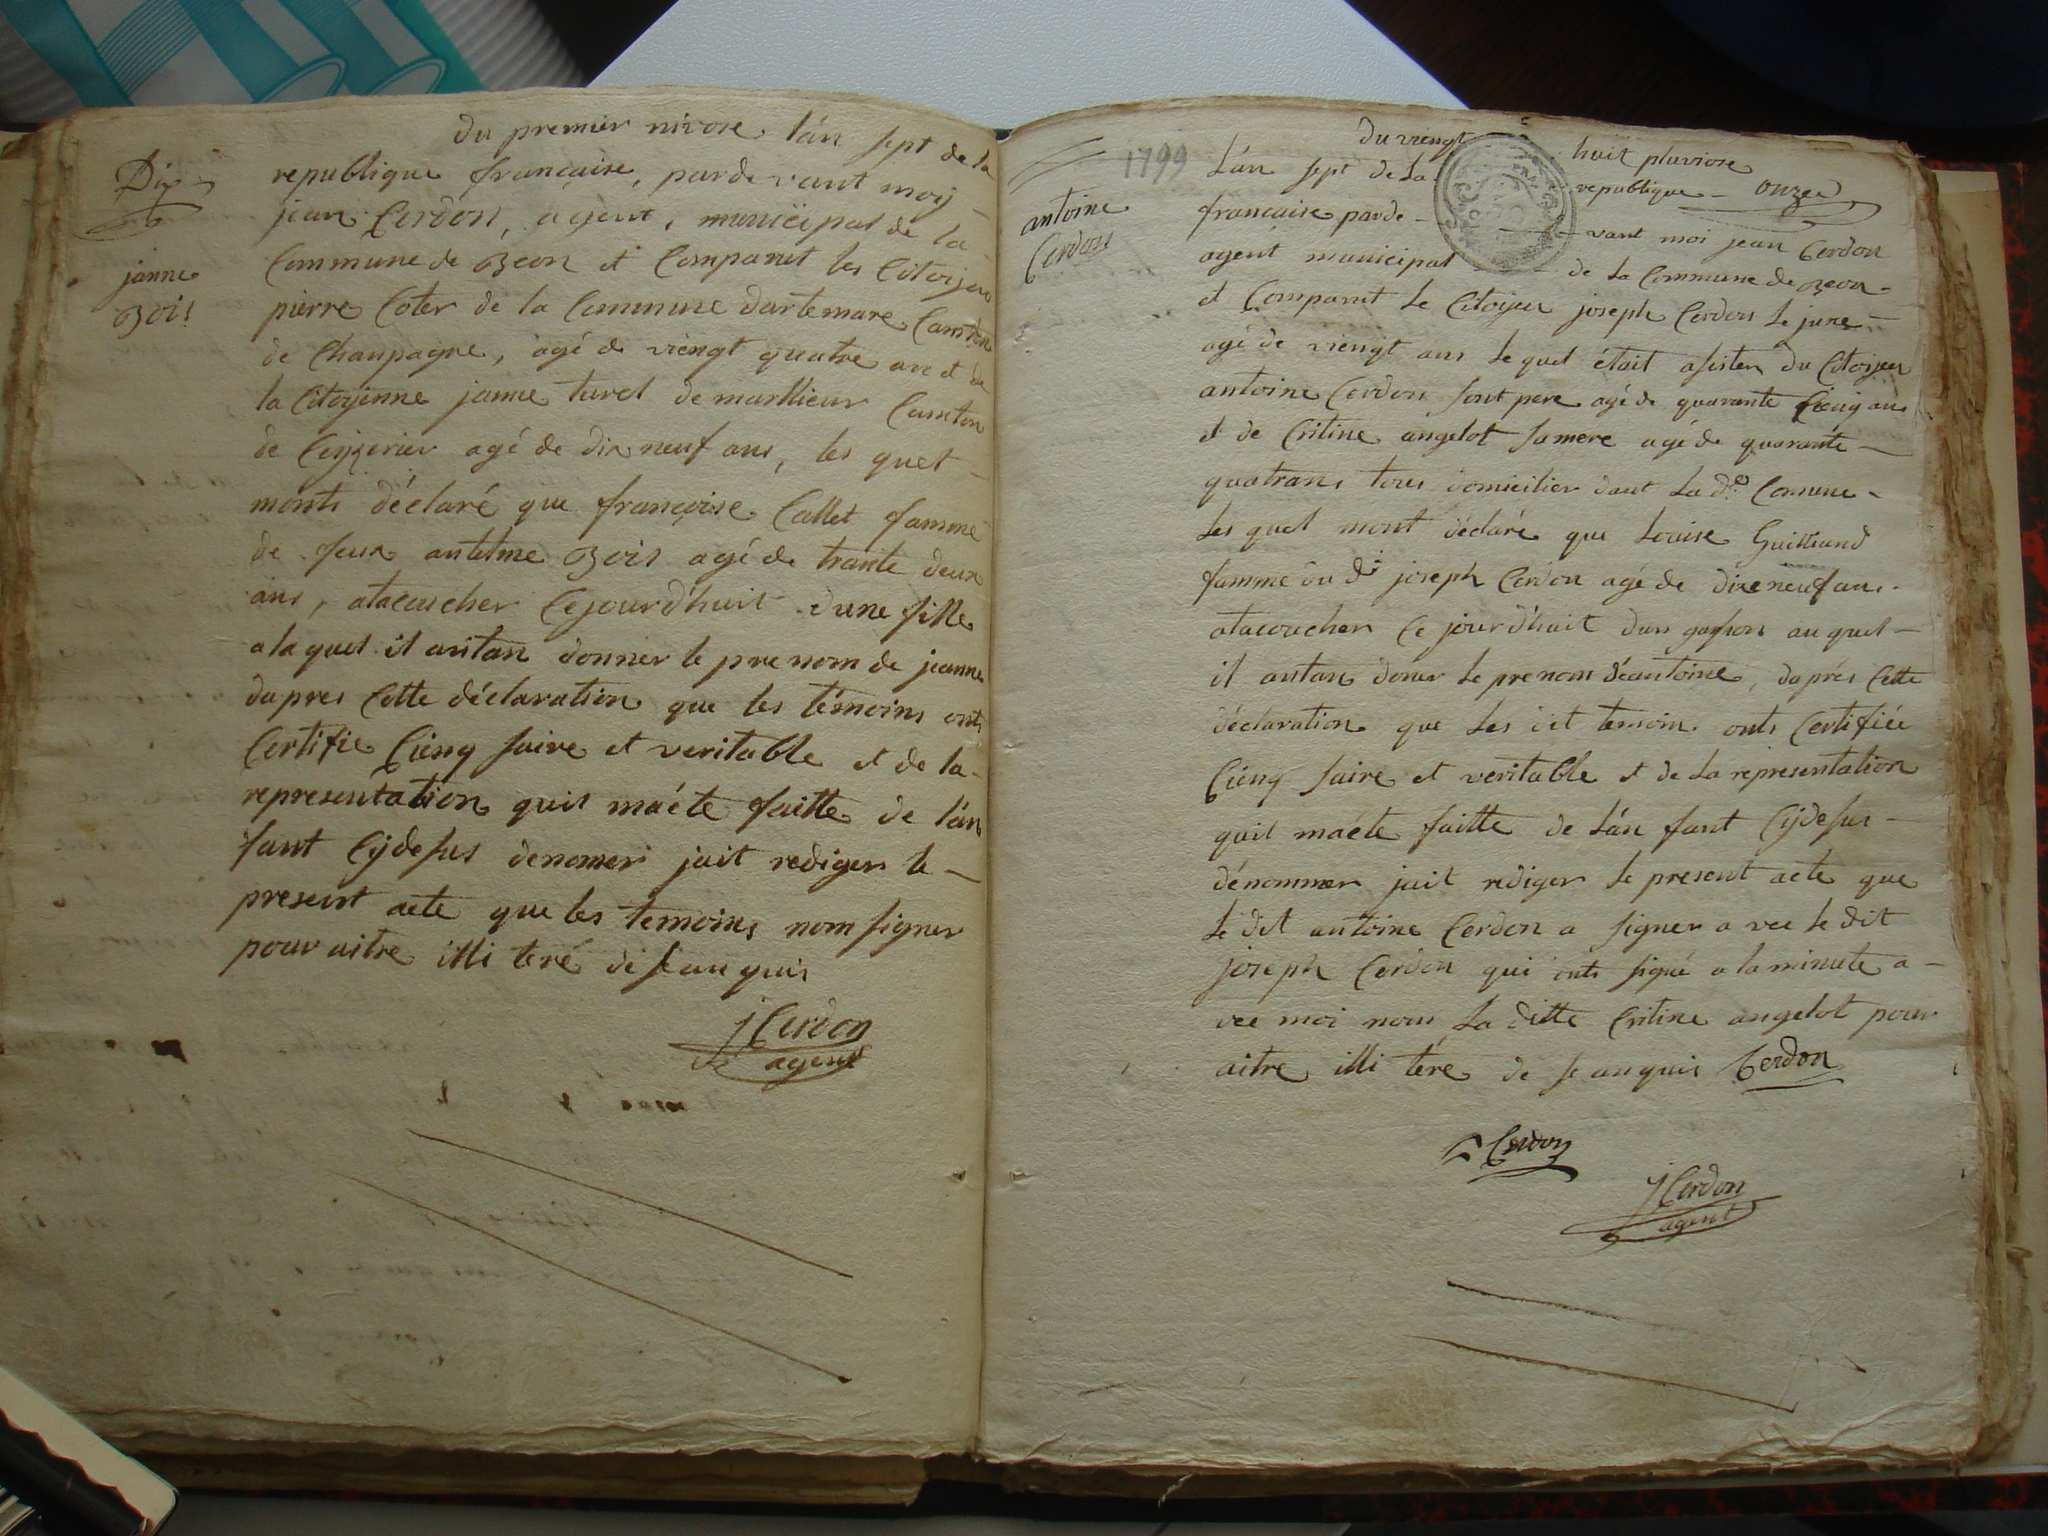 Du premier nivose l'án sept de la
Dix
republique francaise, parde vant moy
jean Cerdon, agent, municipal de la
Commune de Beon et Comparut les Citoijen
janne
Bois
pierre Coter de la Commune dartemare Canton
de Chanpagne, agé de viengt quatre ans et de
la Citoyenne janne turel de marllieur Canton
de agé de dix neuf ans, les quel
monts déclaré que françoise Callet famme
de feux antelme Bois agé de trante deux
ans, atacoucher Cejourdhuit d'une fille
alaquel il antan donner le prenom de jeanne
dapres Cette déclaration que les témoins onts
Certifie Cieng saire et veritable et de la
representation quil maéte faitte de l'án
fant Cijdesus denomer jait rediger le
present acte que les temoins nom signer
pour aitre illi teré de se anquis
jCerdon
agent
1799
Du viengt huit pluviose
Lán sept de La republique onze
antoine
Cerdon
francaise parde vant moi jean Cerdon
agent municipal de La Commune de Beon
et Comparut Le Citoijen joseph Cerdon Le june
agé de viengt ans Le quel était asister Du Citoijen
antoine Cerdon sont pere agé de quarante Cieng ans
et de Critine angelot samere agé de quarante
quatrans tous domicilier dant La de Comune
Les quel mont déclaré que Louise Guilland
famme du dt joseph Cerdon agé de dixe neuf ans
atacoucher Ce jourd'huit dun garson au quel
il antan doner Le prenom déantoine, daprés Cette
déclaration que Les dit temoin onts Certifiée
Cieng saire et veritable et de La representation
quil maéte faitte de Lán fant Cijdesus
dénommer jait rediger Le present acte que
Le dit antoine Cerdon a signer a vec Le dit
joseph Cerdon qui onts signé a la minute a
vec moi nom La ditte Critine angelot pour
aitre illi téré de se anquis Cerdon
Cerdon
jCerdon
agent